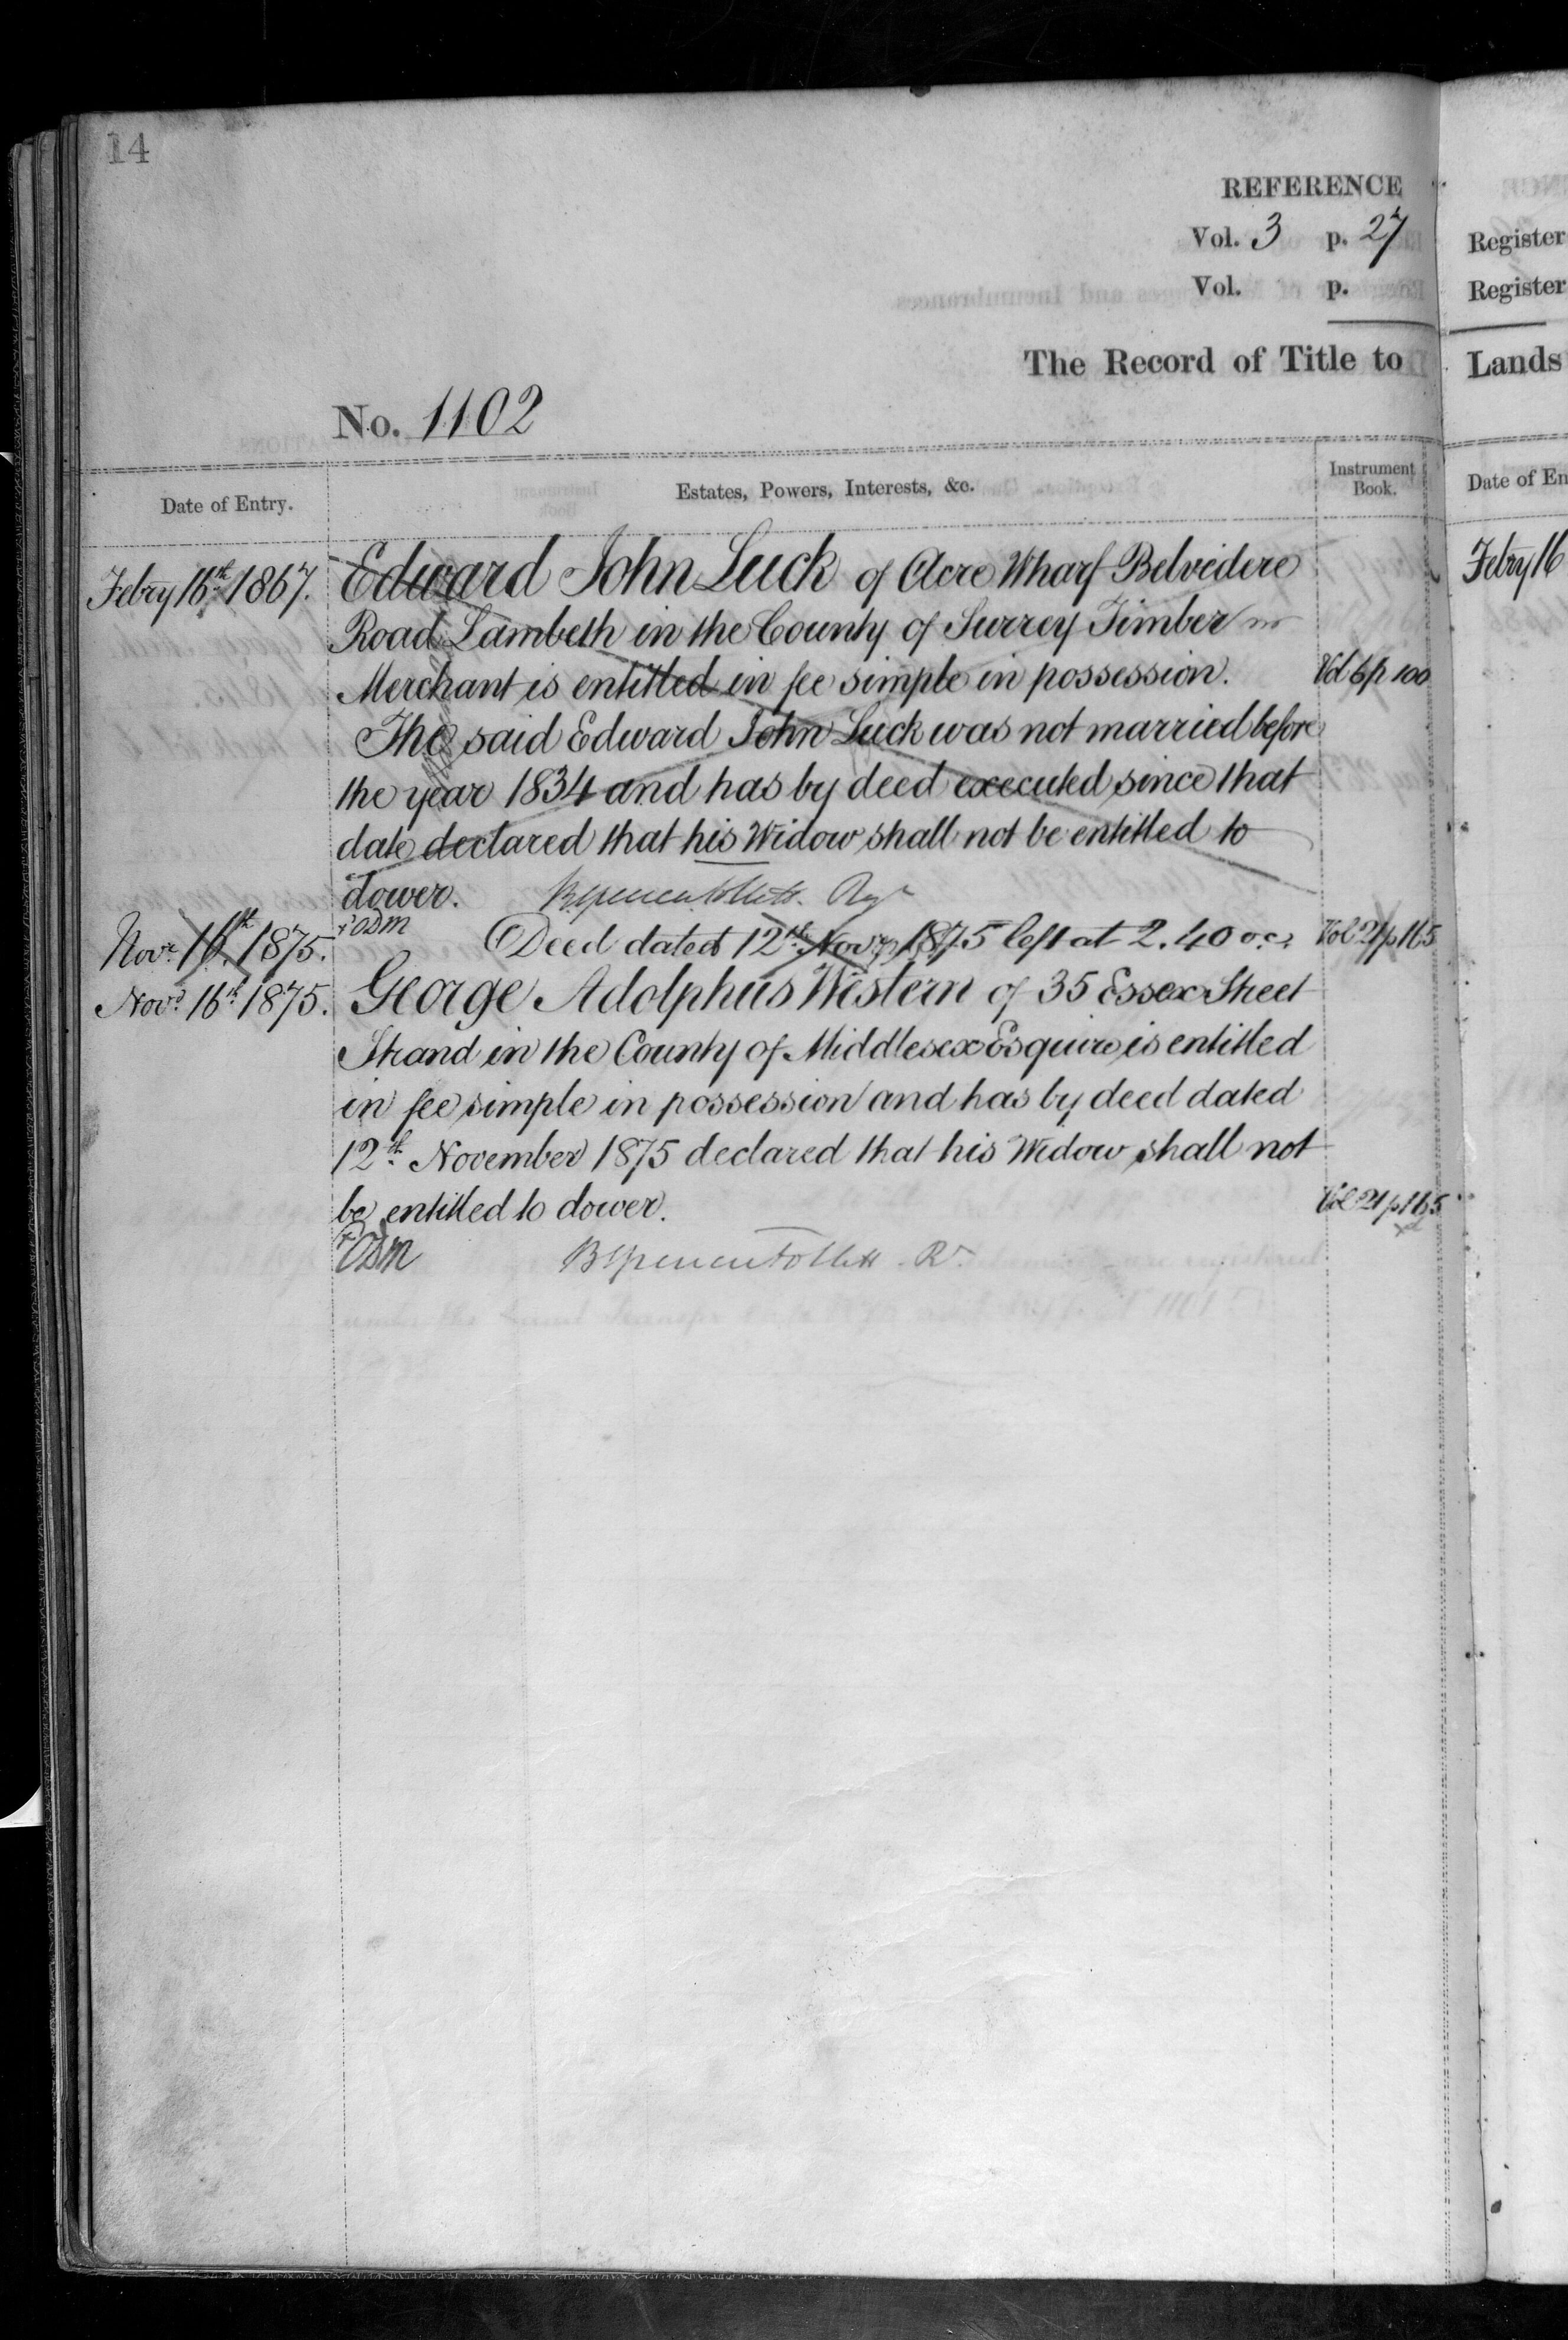 14
REFERENCE
Vol. 3 p. 27
Vol. p.
Register
Register
The Record of Title to
Lands
No. 1102
Date of Entry.
Estates, Powers, Interests, &c.
Instrument Book.
Date of En
Febry 16th 1867. Edward John Luck of Acre Wharf Belvidere
Febry 16
Road Lambeth in the County of Surrey Timber
Merchant is entitled in fee simple in possession. Vol 6 p 100
The said Edward John Luck was not married before
the year 1834 and has by deed executed since that
date declared that his Widow shall not be entitled to
dower.
Novr. 16th 1875. Deed dated 12th Novr. 1875 left at 2.40 o.c. Vol 21 p 165
Novr. 16th 1875. George Adolphus Western of 35 Essex Street
Strand in the County of Middlesex Esquire is entitled
in fee simple in possession and has by deed dated
12th November 1875 declared that his Widow shall not
be entitled to dower. Vol 21 p 165